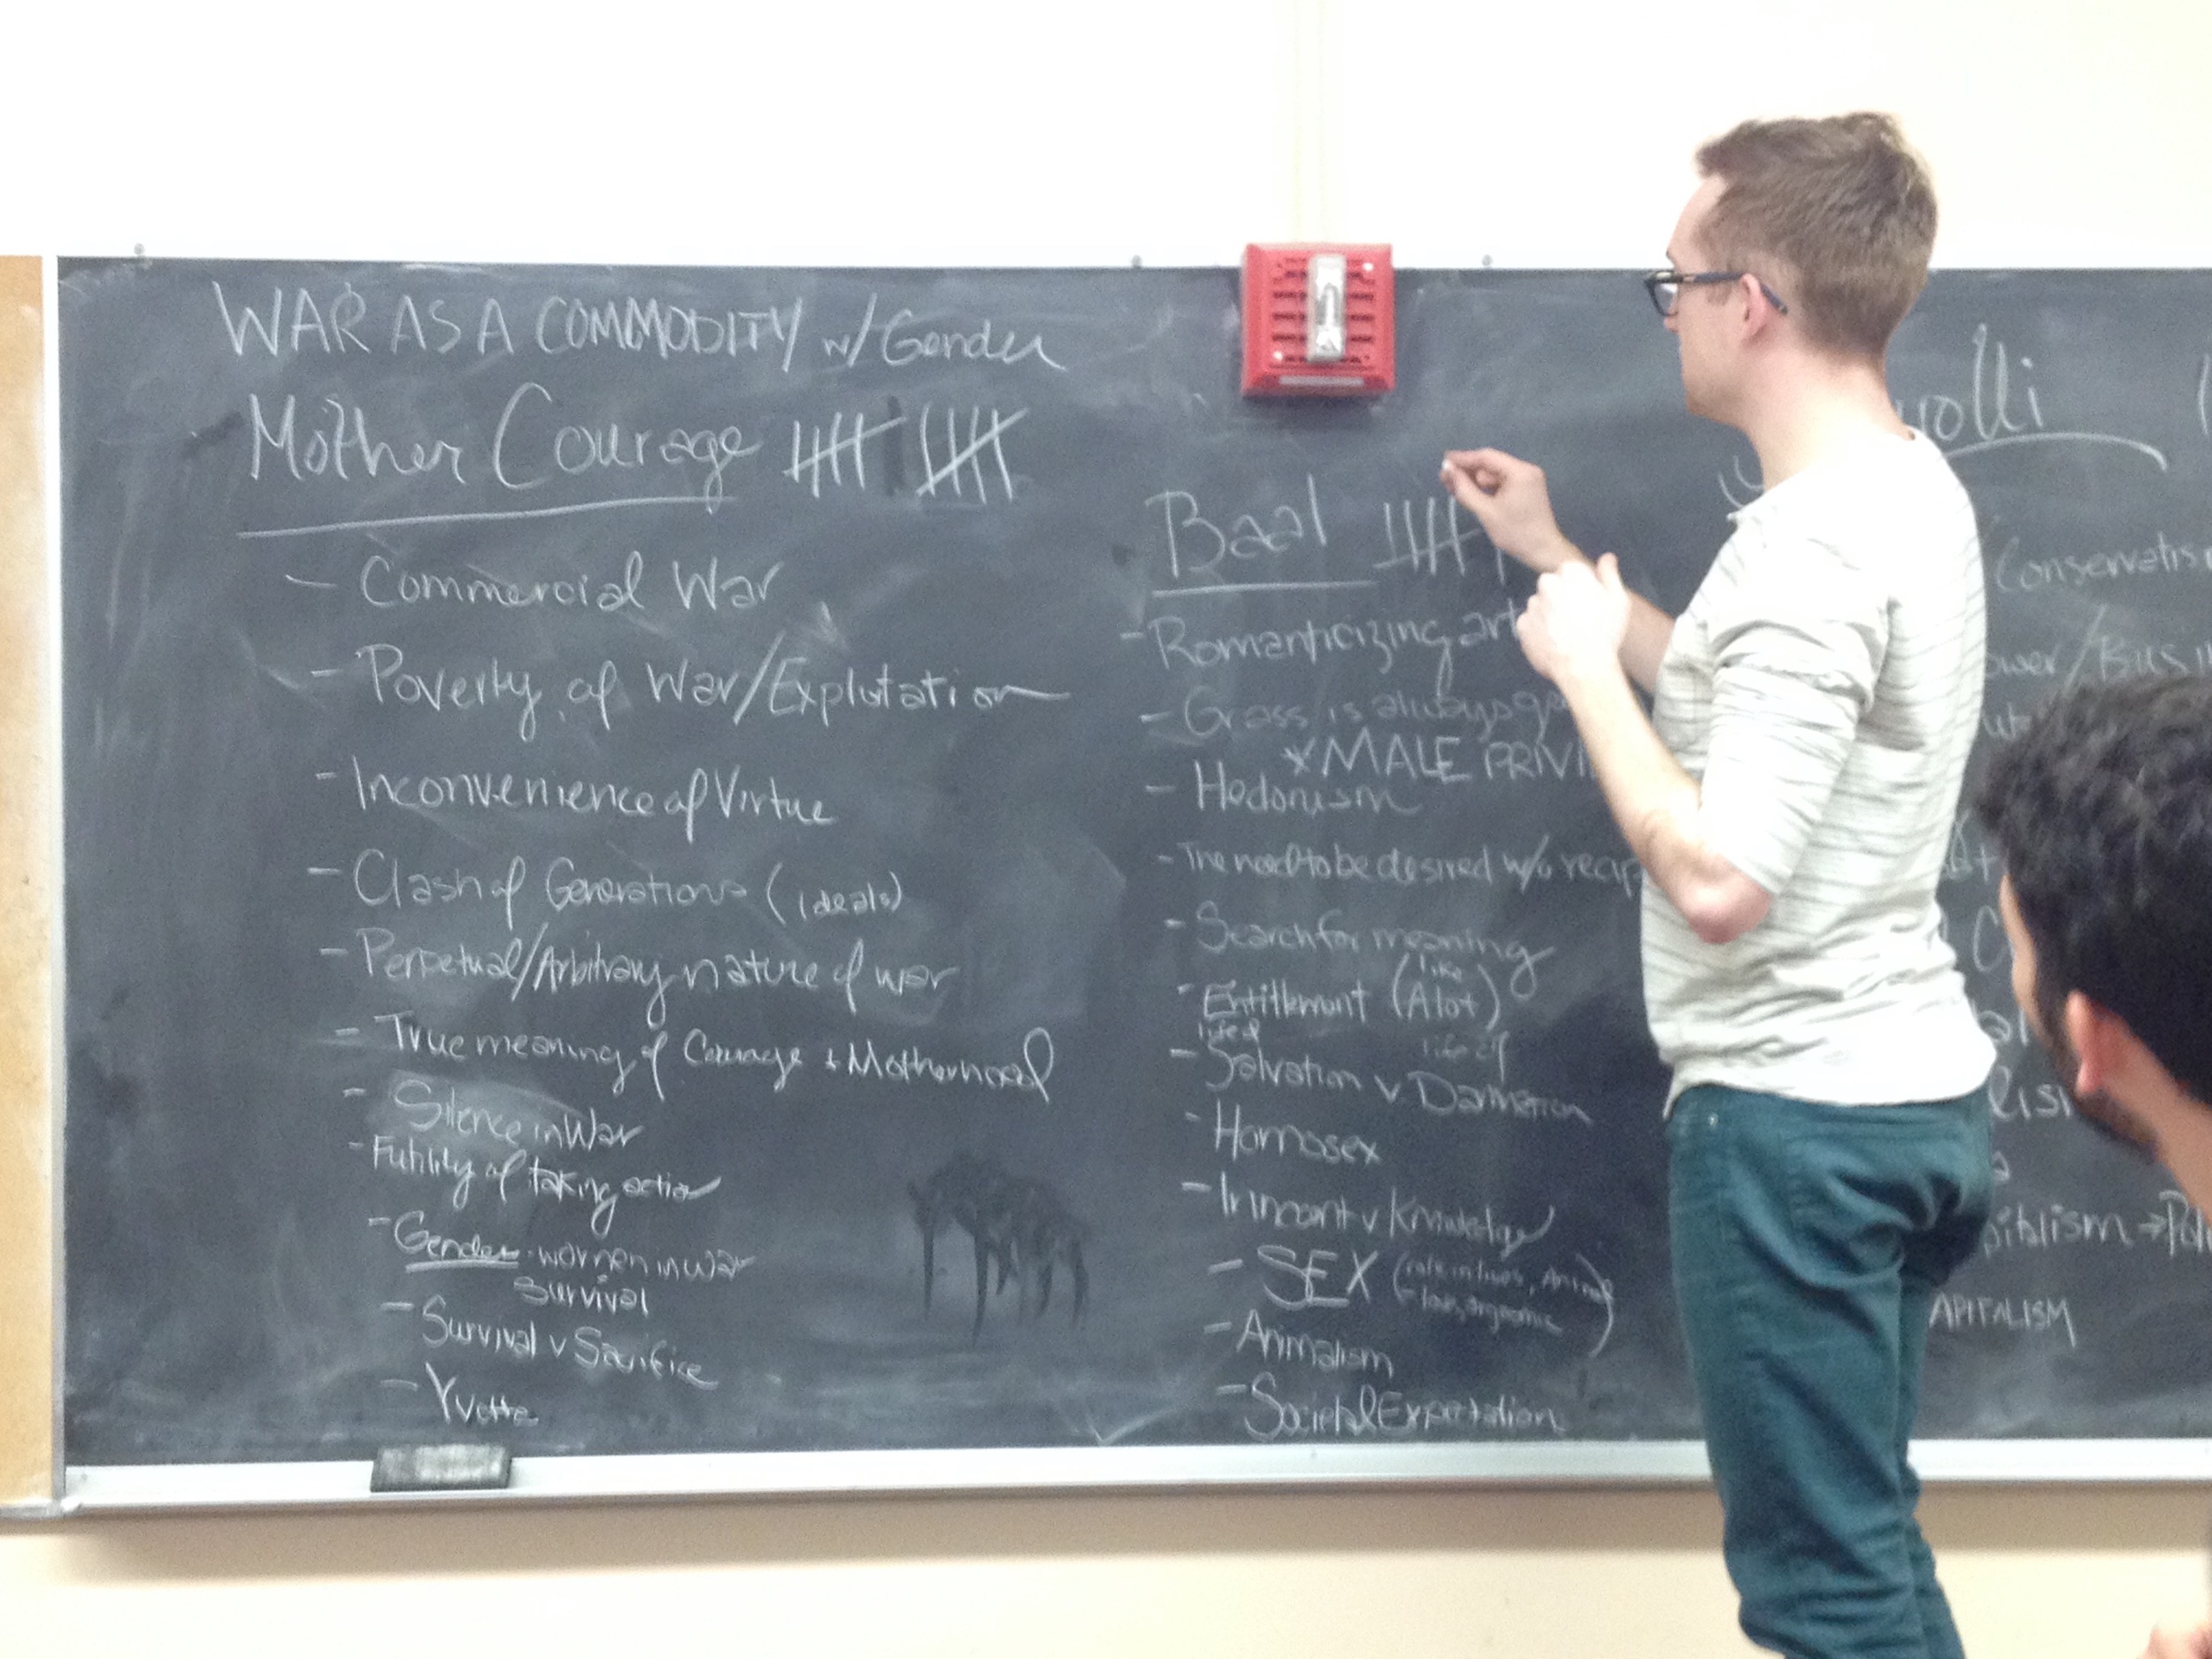 WAR AS A COMMODITY w/ Gender
Mother Courage
- Commercial War
- Poverty of War/Explotation
- Inconvenience of Virtue
- Clash of Generations (ideals)
- Perpetual/Arbitrary nature of war
- True meaning of Courage + Motherhood
- Silence in War
- Futility of taking action
- Gender - women in war
Survival
- Survival v Sacrifice
- Yvette
Baal
- Romanticizing art
- Grass is always
* MALE PRIVI
- Hedonism
- The need to be desired w/o recip
- Search for meaning
like
- Entitlement (A lot)
life of life of
- Salvation v Damnation
- Homosex
- Innocent v Knowledge
- SEX
- Animalism
- Societal Expectation
olli
Conservatis
ower/Busi
lis
italism →
APITALISM